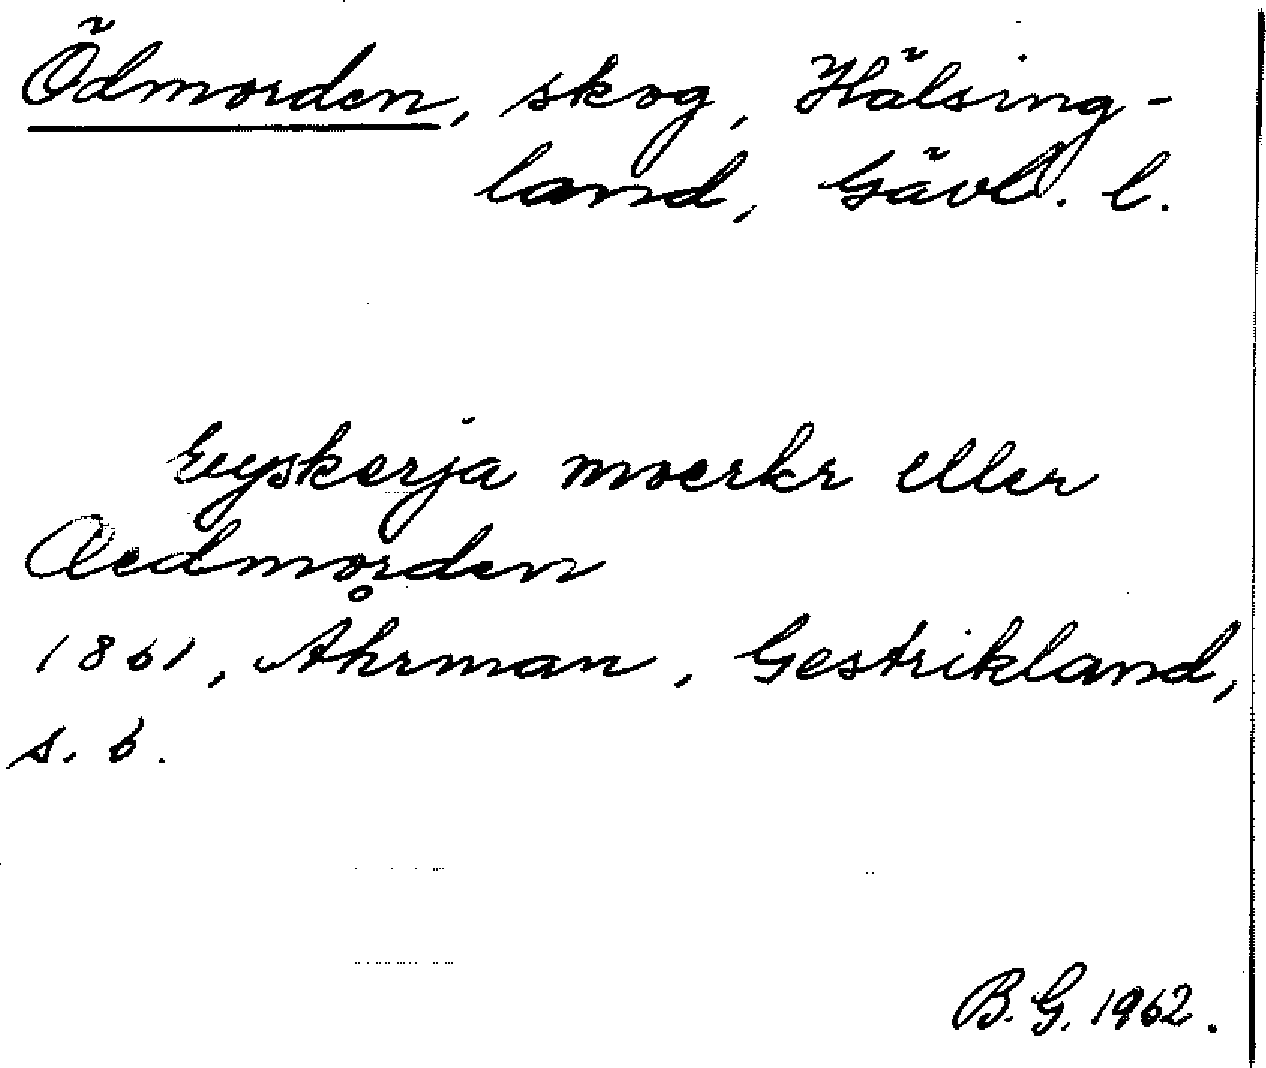 Ödmorden, skog, Hälsing-
land, Gävl. l.
Eyskerja moerkr eller
Aedmorden
1861, Åhrman, Gestrikland,
s. 6.
B. G. 1962.